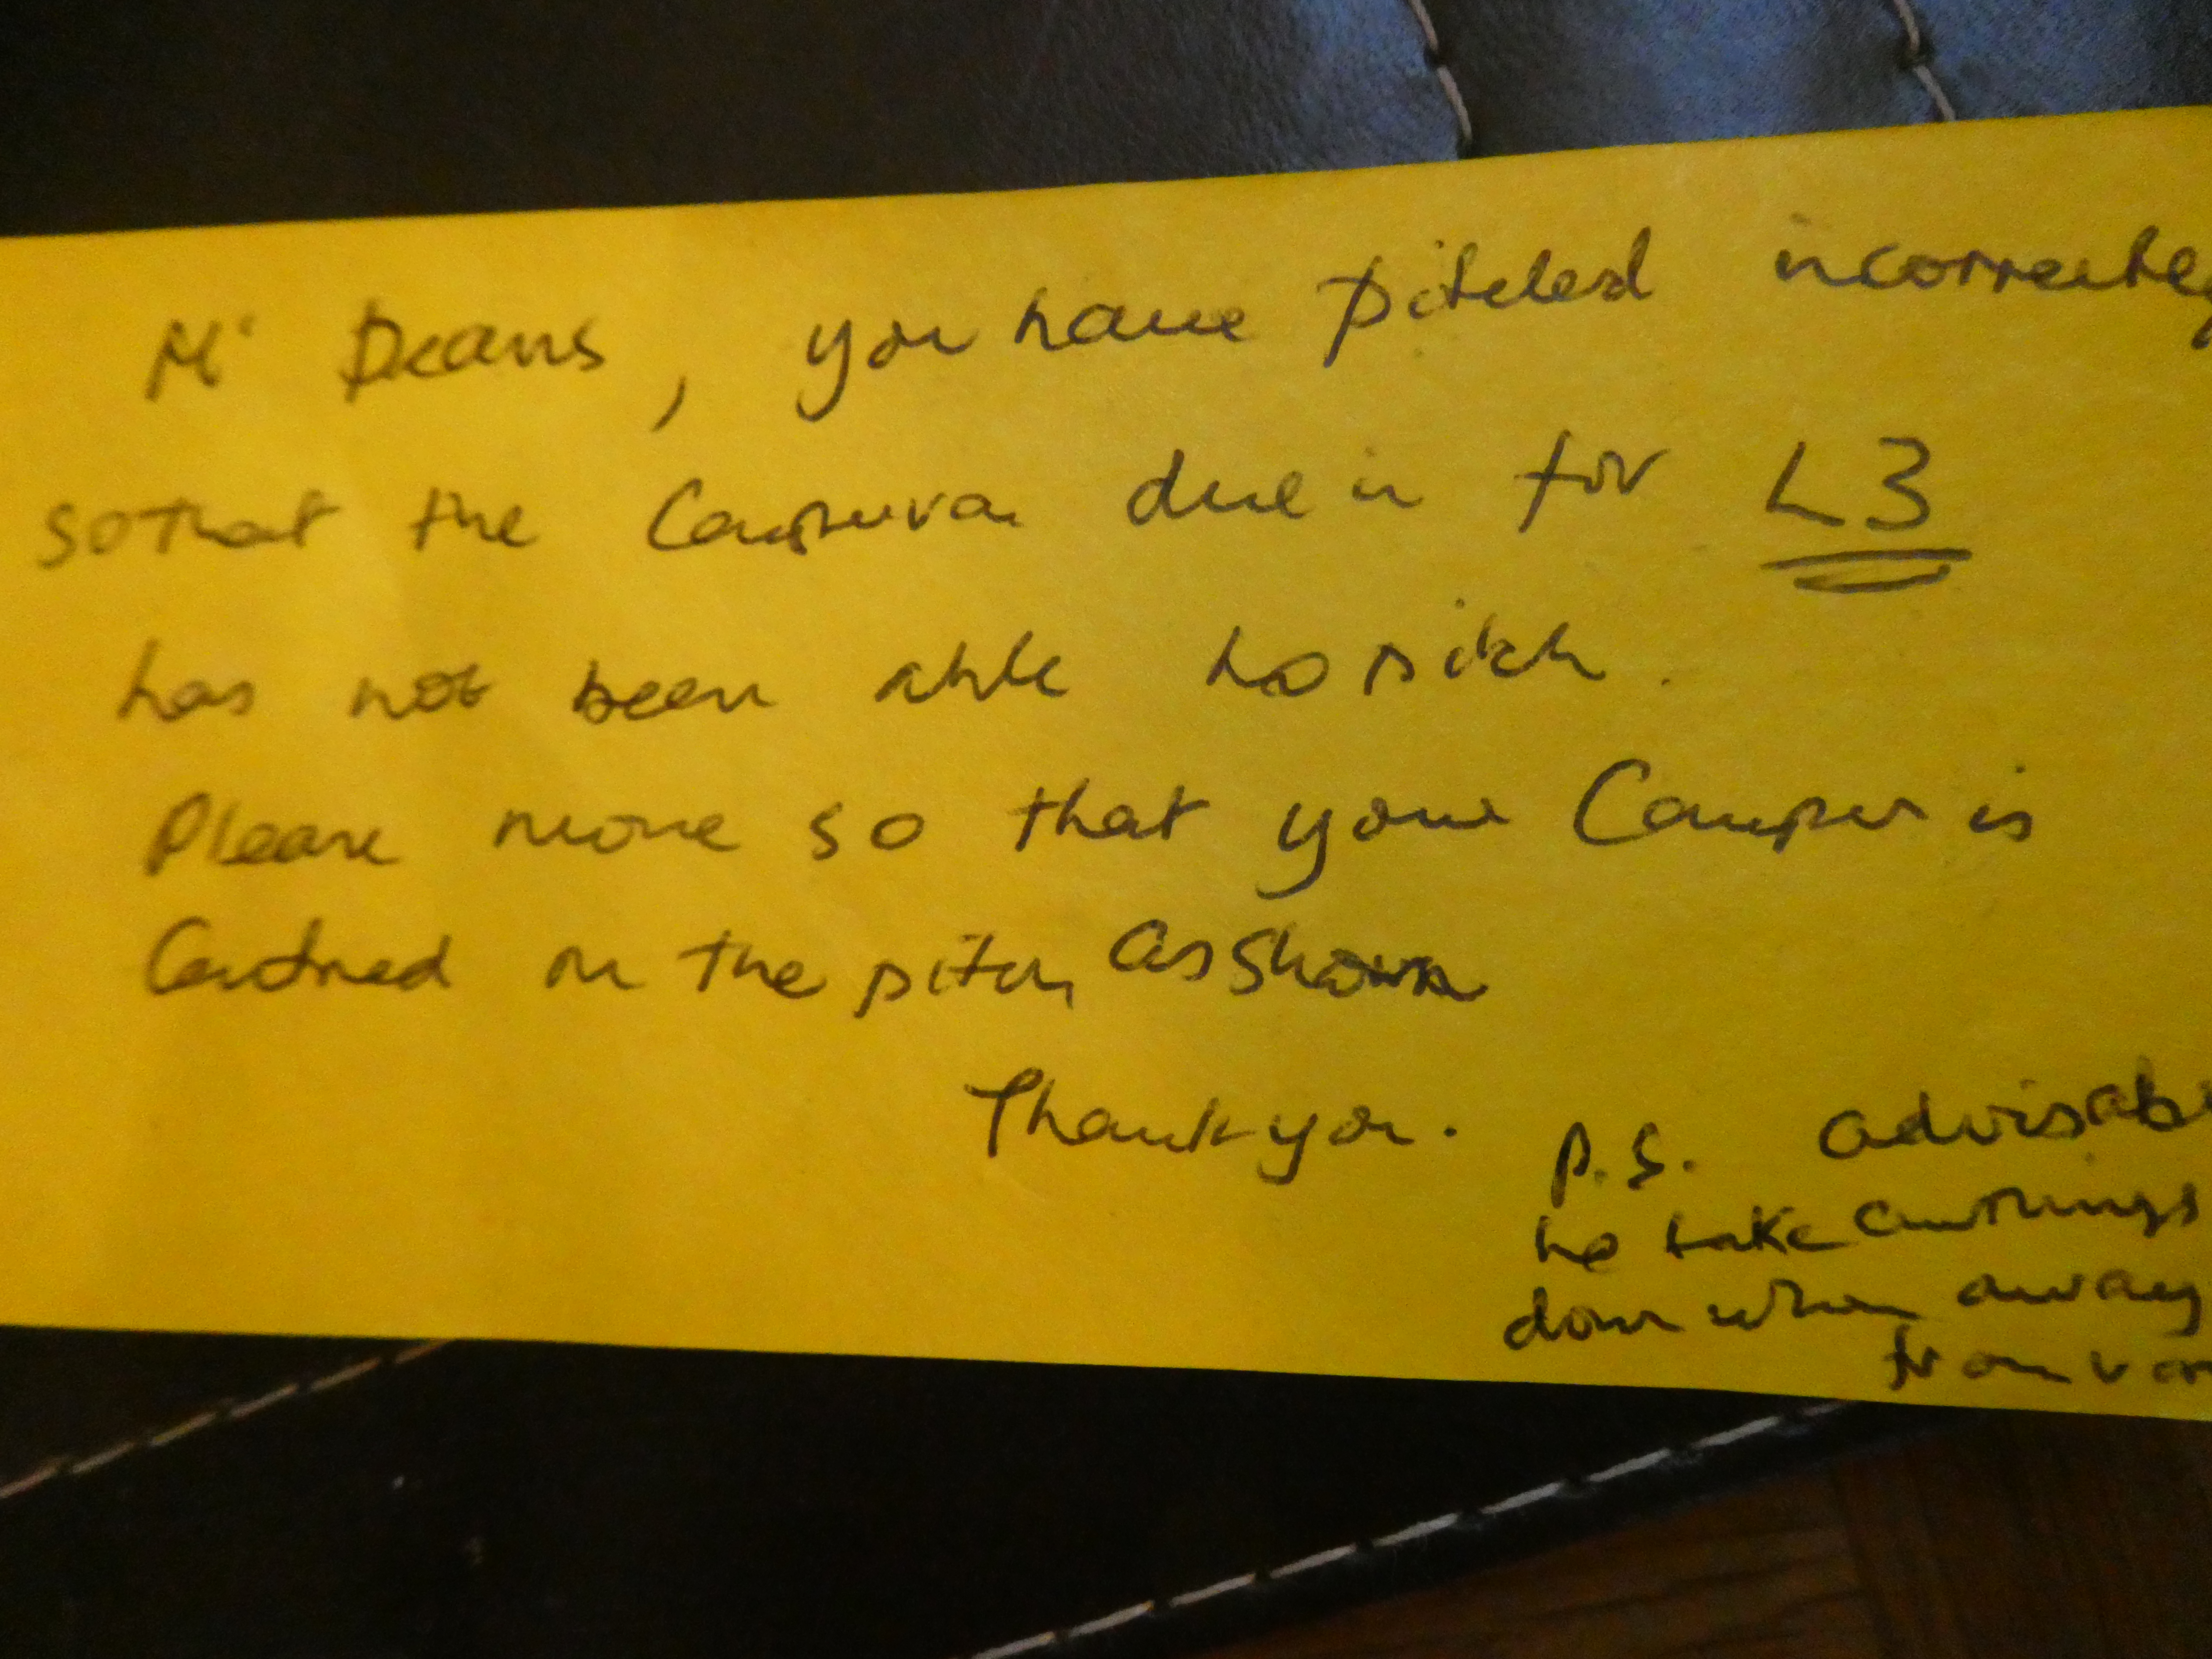 Mr Deans, you have pitched incorrectly
so that the Campervan due in for L3
has not been able to pitch.
Please move so that your Camper is
Centred on the pitch as shown
Thank you.
P.S. advisab
to take awnings
down when away
from van